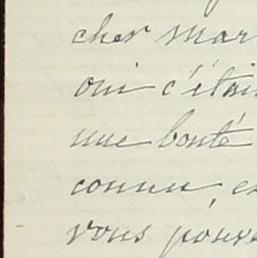 cher mar
oui c'étai
une bonté
connu, e
vous pouv